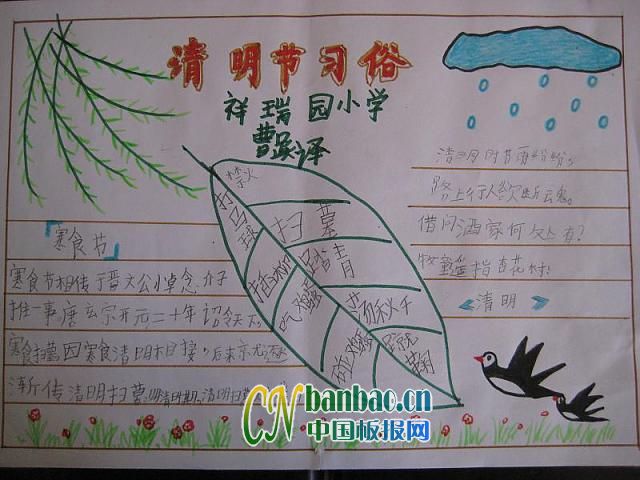 清明节习俗
祥瑞园小学
清明时节雨纷纷。
路上行人欲断魂。
借问酒家何处有？
牧童遥指杏花村
《清明》
「寒食节」
寒食节相传于晋文公悼念、介子
推一事唐玄宗开元二十年诏令天
寒食扫墓因寒食清明相接，后来
渐传清明扫墓
禁火
打马球
扫墓
插柳
踏青
吃
荡秋千
碰
蹴鞠
CN banbao.cn
中国板报网